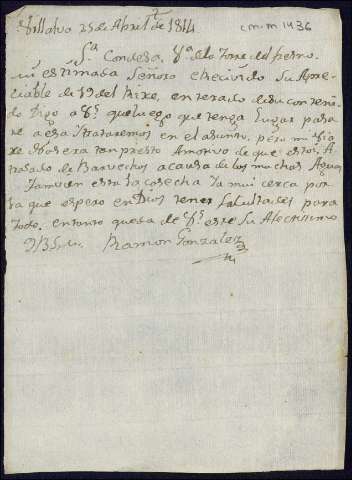 Villalva 25 de Abril de 1814
cmm 1436
Sª Condesa Vª de la Torre del fresno
mi estimada Señora e recivido su Apre
ciable de 19 del Rixe, enterado de su conteni
do Digo a Vˢ que luego que tenga lugar pasa
re a esa trataremos en el asunto, pero mi
no sera tan presto Amotivo de que estoi A
trasado de Barvechos a causa de las muchas Aguas
Tamvien esta la cosecha ya mui cerca por
la que espero en Dios tener facultades para
todo, entanto queda de Vˢ este su Afectisimo
Ramon Gonzalez